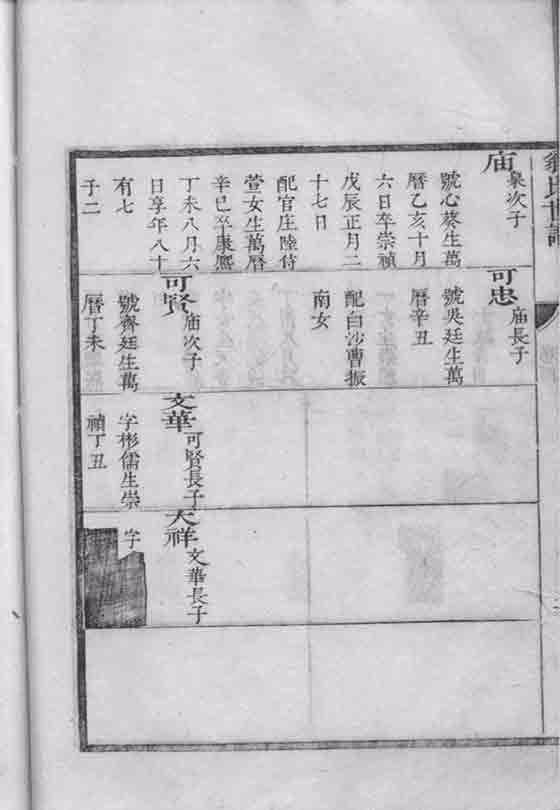 庙
次子
號心葵生萬
曆乙亥十月
六日卒崇禎
戊辰正月二
十七日
配官庄陸侍
萱女生萬曆
辛巳卒康熙
丁未八月六
日享年八十
有七
子二
可忠
庙長子
號吳廷生萬
曆辛丑
配白沙曹振
南女
可賢
庙次子
號齊廷生萬
曆丁未
文華
可賢長子
字彬儒生崇
禎丁丑
天祥
文華長子
字